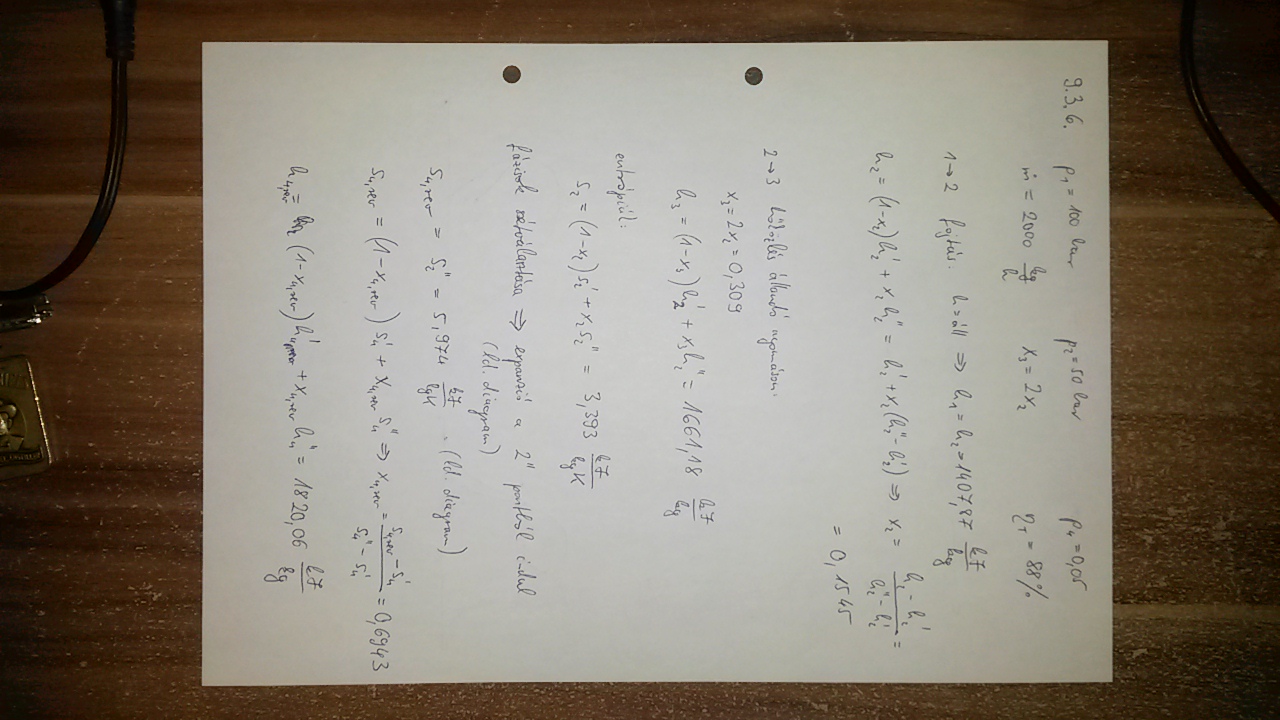 9.3.6. p₁ = 100 bar p₂ = 50 bar p₄ = 0,05
ṁ = 2000 kg/h x₃ = 2x₂ η_T = 88%
1→2 fojtás: h=áll ⇒ h₁ = h₂ = 1407,87 kJ/kg
h₂ = (1-x₂)h₂' + x₂h₂'' = h₂' + x₂(h₂''-h₂') ⇒ x₂ = (h₂-h₂')/(h₂''-h₂') =
= 0,1545
2→3 hőközlés állandó nyomáson:
x₃ = 2x₂ = 0,309
h₃ = (1-x₃)h₂' + x₃h₂'' = 1661,18 kJ/kg
entrópiűl:
s₂ = (1-x₂)s₂' + x₂s₂'' = 3,393 kJ/kgK
fázisok szétválasztása ⇒ expanzió a 2'' pontból indul
(ld. diagram)
s₄,rev = s₂'' = 5,974 kJ/kgK (ld. diagram)
s₄,rev = (1-x₄,rev)s₄' + x₄,rev s₄'' ⇒ x₄,rev = (s₄,rev-s₄')/(s₄''-s₄') = 0,6943
h₄,rev = (1-x₄,rev)h₄' + x₄,rev h₄'' = 1820,06 kJ/kg